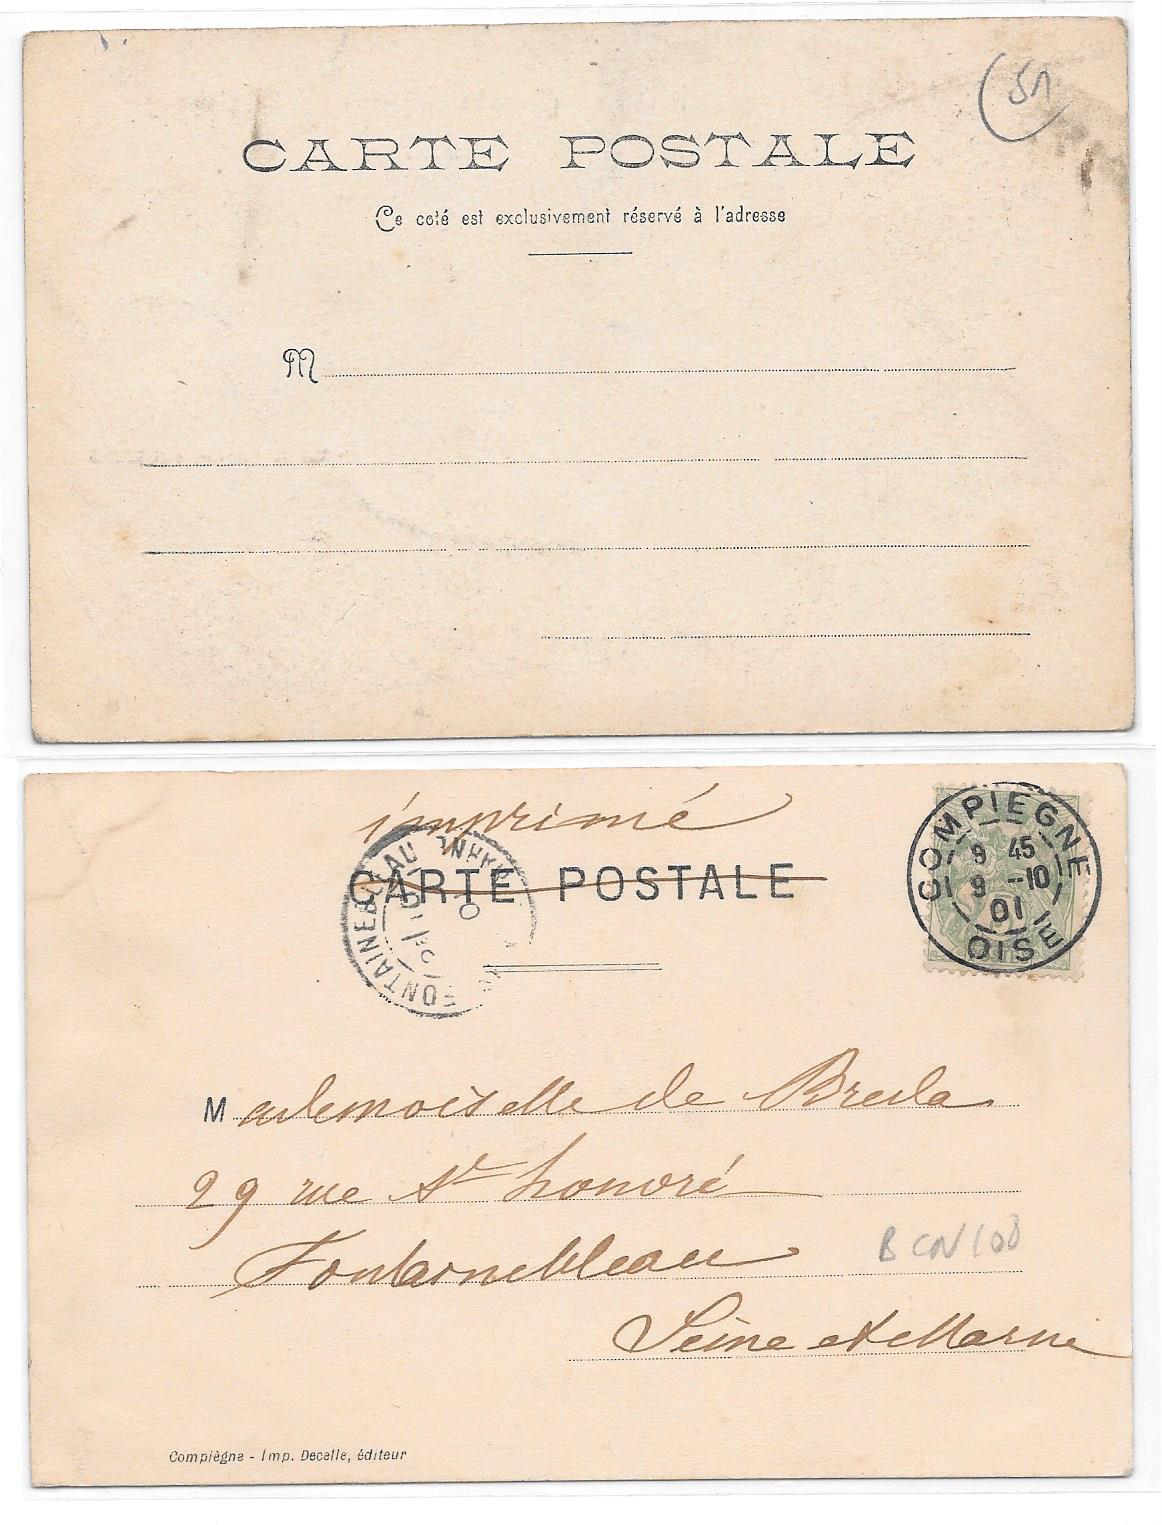 51
CARTE POSTALE
Ce coté est exclusivement réservé à l'adresse
M
imprimé
CARTE POSTALE
FONTAINEBLEAU
COMPIEGNE
9 45
9 -10
01
OISE
Mademoiselle de Breda
29 rue St honoré
Fontainebleau
BCN108
Seine et Marne
Compiègne - Imp. Decelle, éditeur